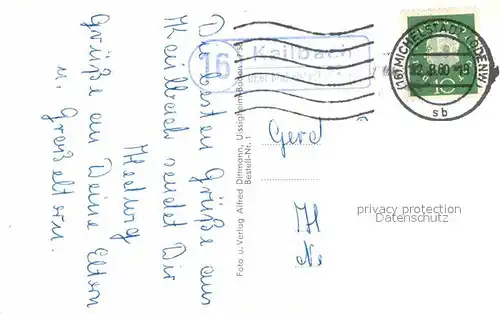 Die besten Grüße aus
Kailbach sendet Dir
Hedwig
Grüße an Deine Eltern
u. Großeltern.
Foto u. Verlag Alfred Dittmann, Uissigheim
Bestell-Nr. 1
16
Kailbach
(16) MICHELSTADT (ODENW)
12.8.60-15
sb
10
Gerd
H
N
privacy protection
Datenschutz